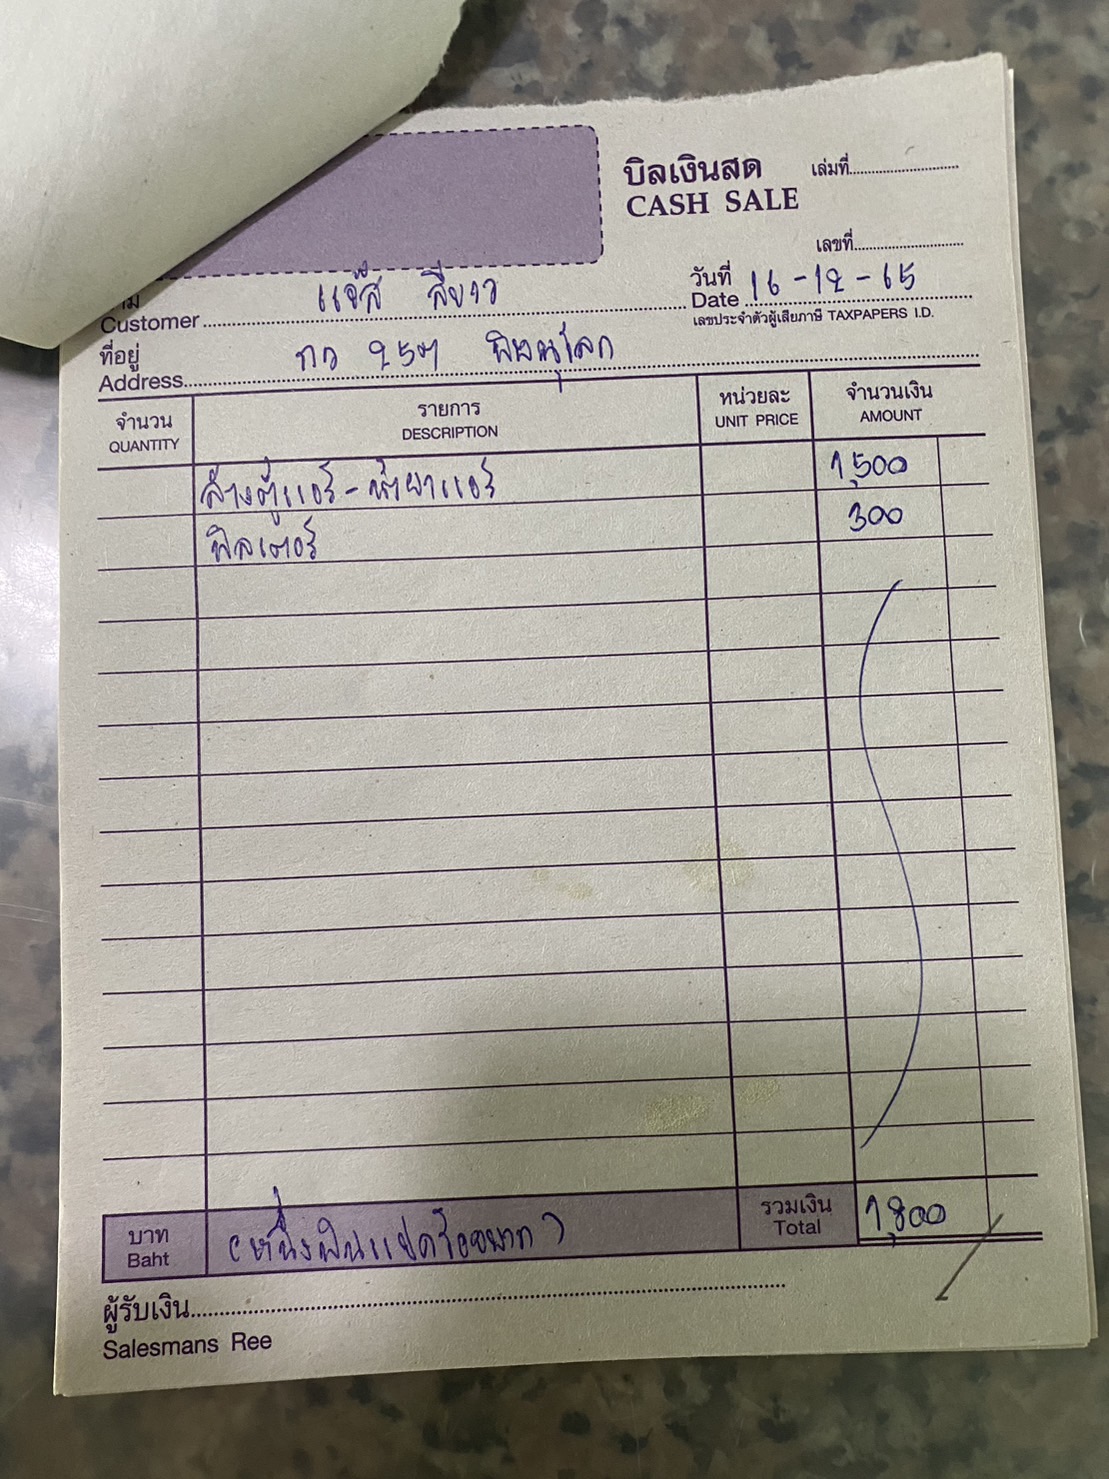 บิลเงินสด เล่มที่
CASH SALE
เลขที่
Customer แจ๊ส สีขาว
วันที่ 16-12-65
Date
เลขประจำตัวผู้เสียภาษี TAXPAPERS I.D.
ที่อยู่ พิษณุโลก
Address
จำนวน รายการ หน่วยละ จำนวนเงิน
QUANTITY DESCRIPTION UNIT PRICE AMOUNT
ล้างตู้แอร์-น้ำยาแอร์ 1,500
ฟิลเตอร์ 300
บาท (หนึ่งพันแปดร้อยบาท) รวมเงิน 1,800
Baht Total
ผู้รับเงิน
Salesmans Ree